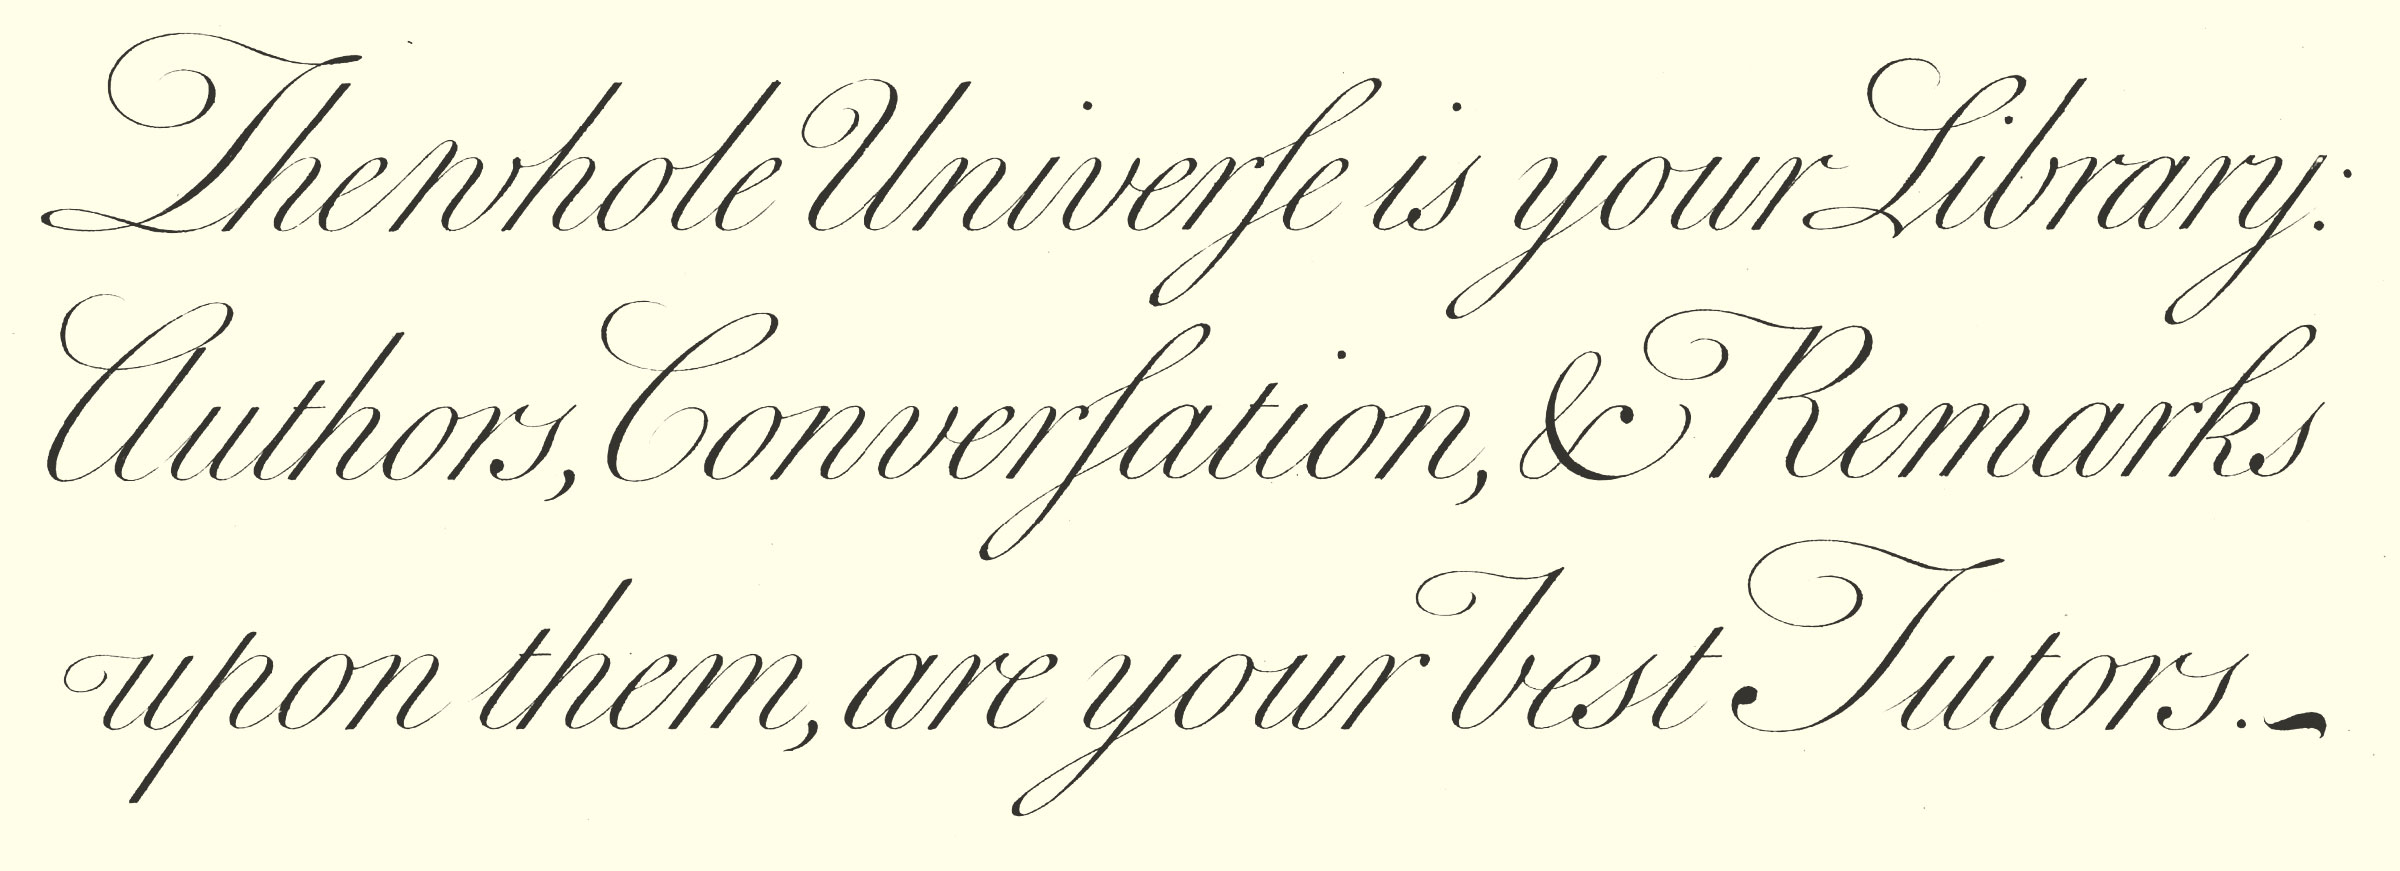 The whole Univerſe is your Library:
Authors, Converſation, & Remarks
upon them, are your best Tutors.